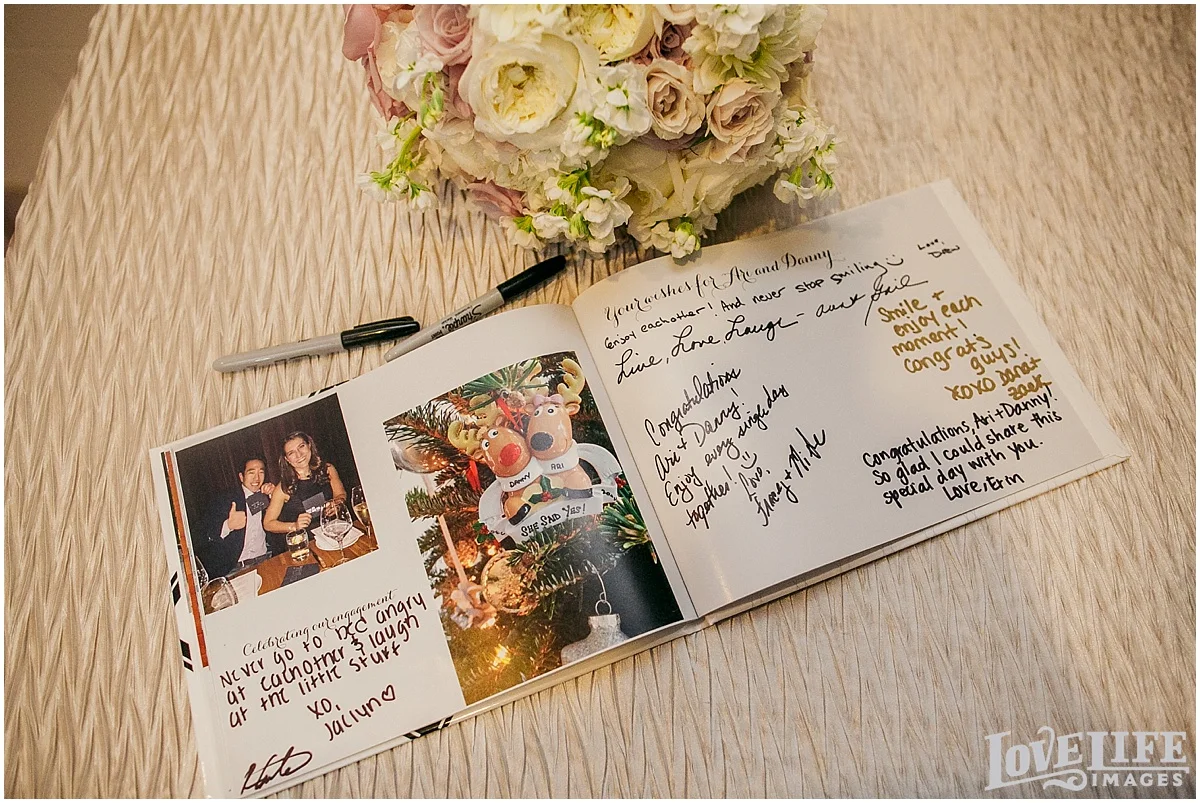 Sharpie
DANNY
ARI
SHE SAID YES!
Celebrating our engagement
Never go to bed angry
at eachother & laugh
at the little stuff
xo,
Jaclyn ♡
Your wishes for Ari and Danny
enjoy eachother! And never stop smiling ☺
Love,
Drew
Live, Love, Laugh - aunt Gail
Smile +
enjoy each
moment!
congrats
guys!
XOXO
Congratulations
Ari + Danny!
Enjoy every single day
together! ☺
Love,
Congratulations, Ari + Danny!
so glad I could share this
special day with you.
Love, Erin
LOVE LIFE
IMAGES